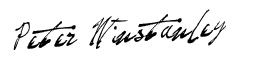 Peter Winstanley